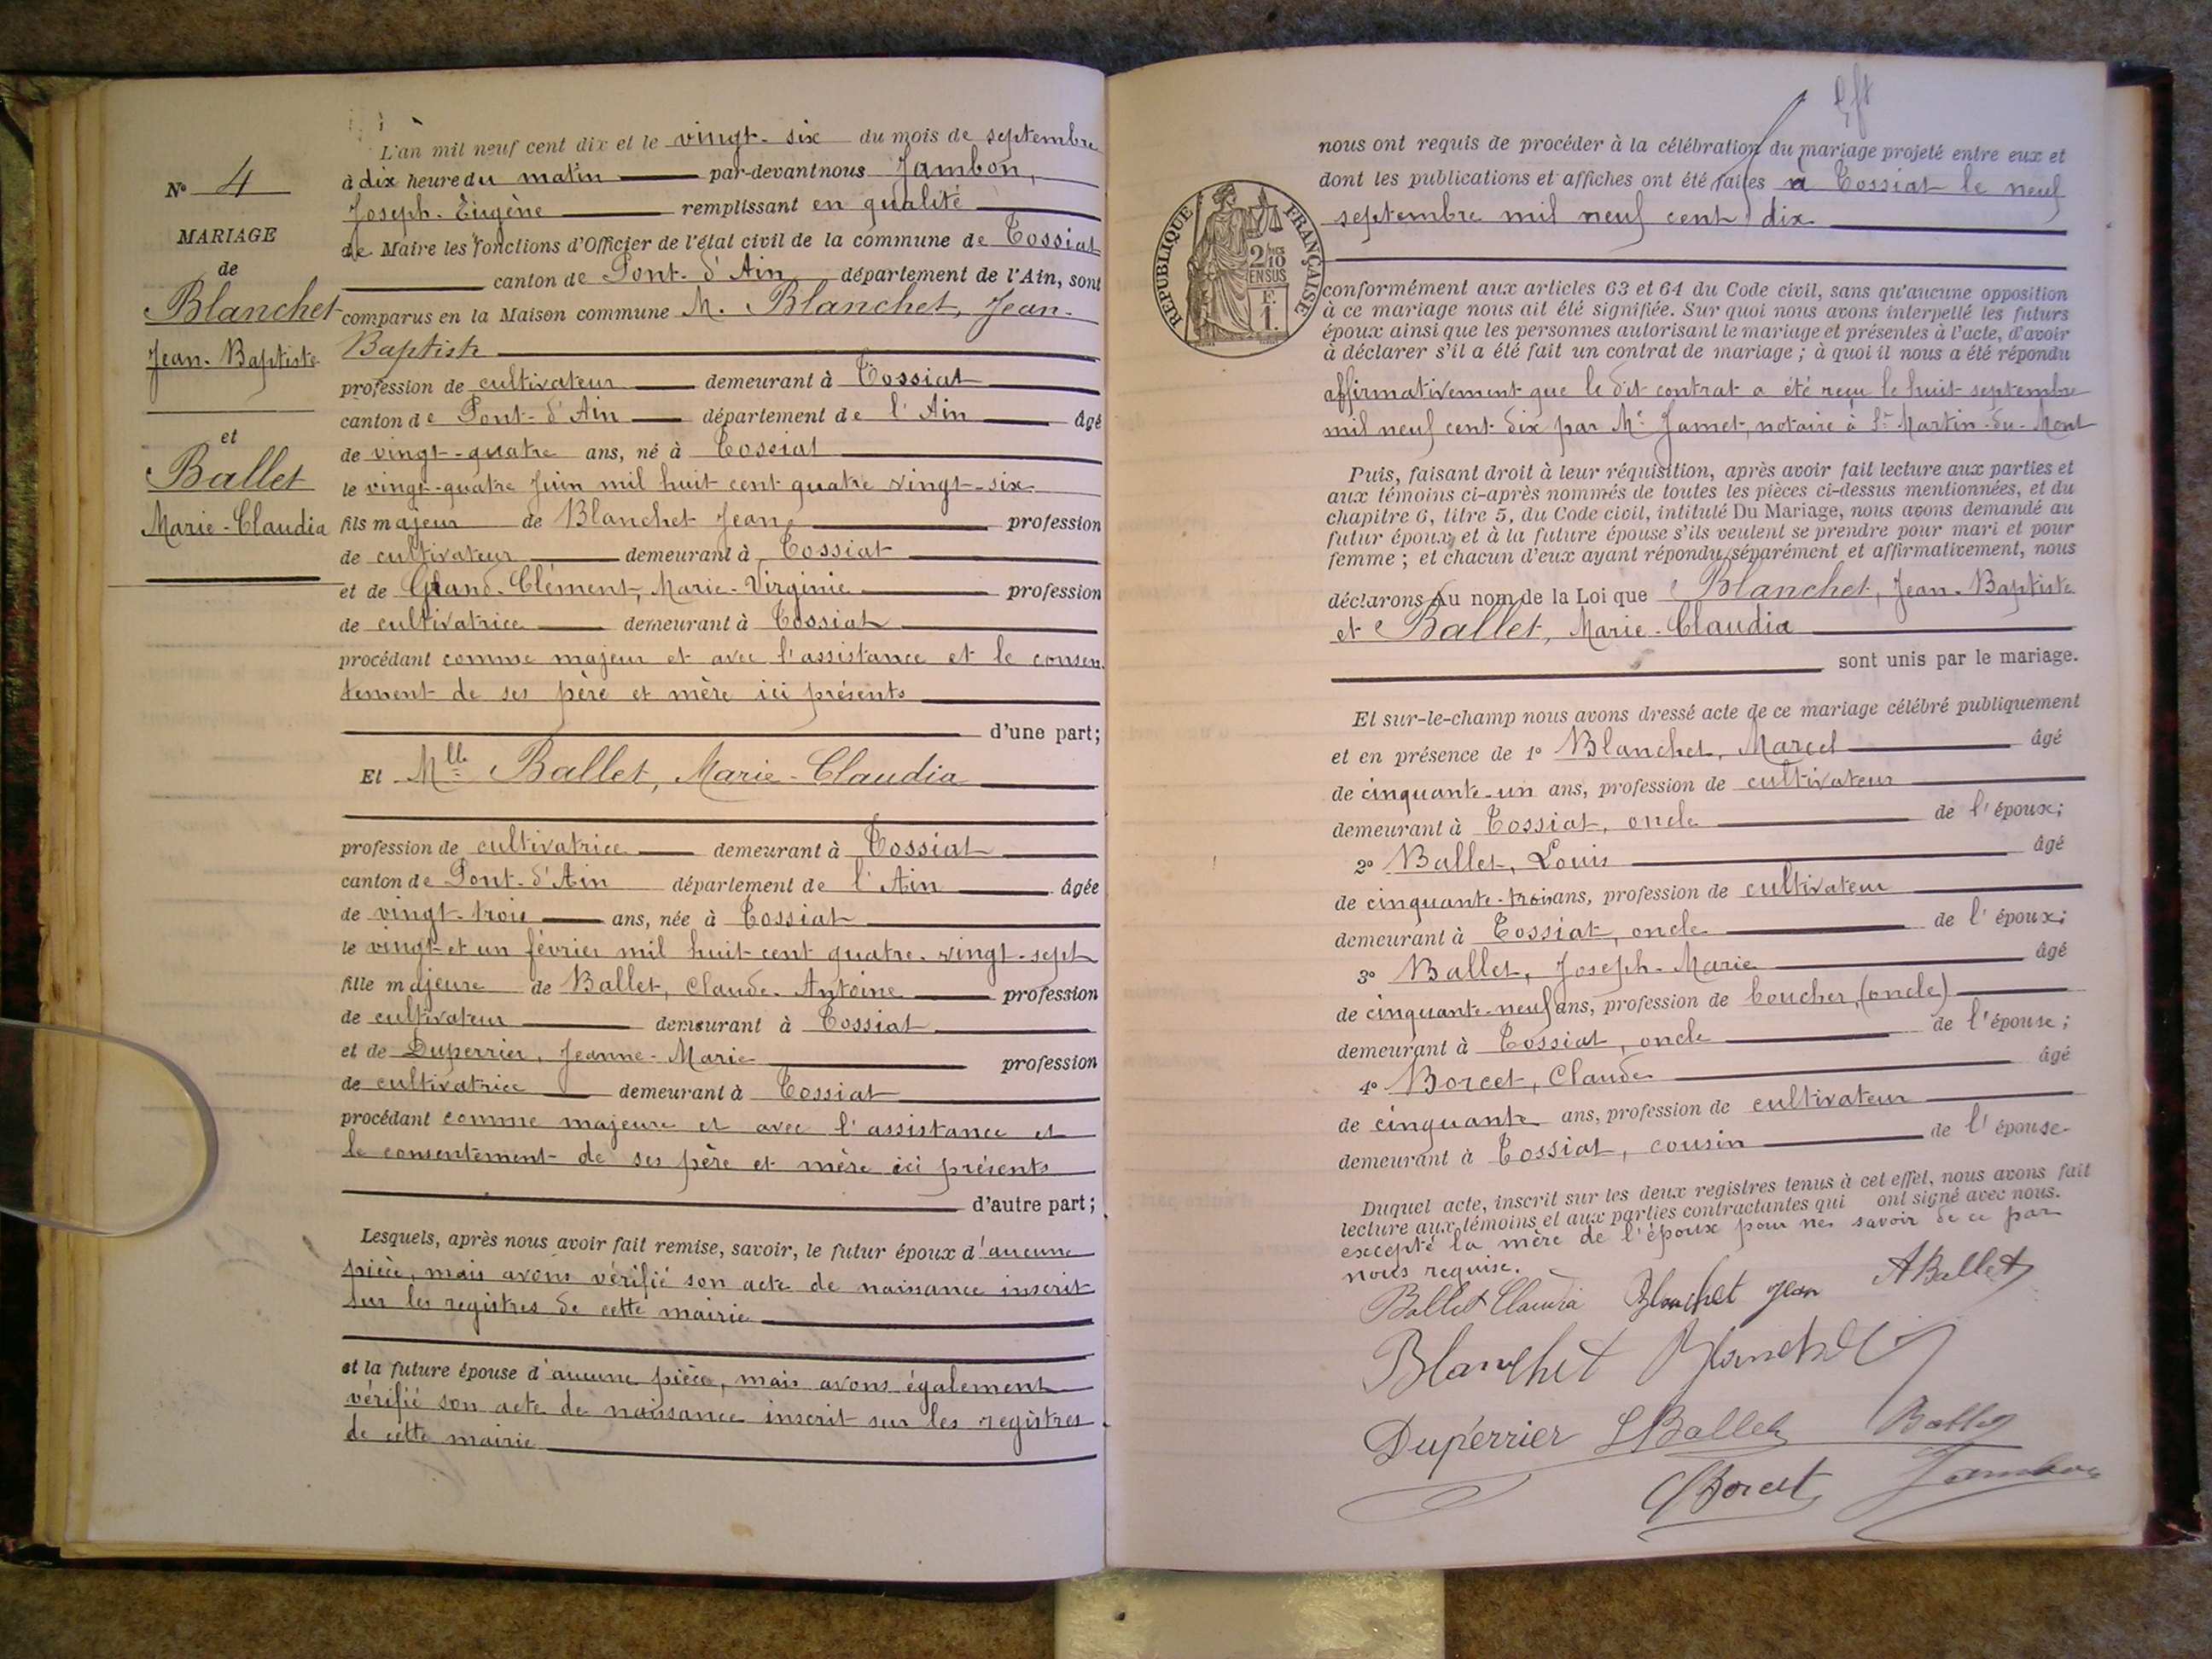 N° 4
MARIAGE
de
Blanchet
Jean-Baptiste
et
Ballet
Marie-Claudia
L'an mil neuf cent dix et le vingt-six du mois de septembre
à dix heure du matin par-devant nous Jambon,
Joseph-Eugène remplissant en qualité
de Maire les fonctions d'Officier de l'état civil de la commune de Tossiat
canton de Pont-d'Ain département de l'Ain, sont
comparus en la Maison commune M. Blanchet, Jean-
Baptiste
profession de cultivateur demeurant à Tossiat
canton de Pont-d'Ain département de l'Ain âgé
de vingt-quatre ans, né à Tossiat
le vingt-quatre Juin mil huit cent quatre vingt-six
fils majeur de Blanchet Jean, profession
de cultivateur demeurant à Tossiat
et de Grand-Clément, Marie-Virginie profession
de cultivatrice demeurant à Tossiat
procédant comme majeur et avec l'assistance et le consen-
tement de ses père et mère ici présents
d'une part;
Et Mlle Ballet, Marie-Claudia
profession de cultivatrice demeurant à Tossiat
canton de Pont-d'Ain département de l'Ain âgée
de vingt-trois ans, née à Tossiat
le vingt-et un février mil huit cent quatre-vingt-sept
fille majeure de Ballet, Claude-Antoine profession
de cultivateur demeurant à Tossiat
et de Duperrier, Jeanne-Marie profession
de cultivatrice demeurant à Tossiat
procédant comme majeure et avec l'assistance et
le consentement de ses père et mère ici présents
d'autre part;
Lesquels, après nous avoir fait remise, savoir, le futur époux d'aucune
pièce, mais avons vérifié son acte de naissance inscrit
sur les registres de cette mairie
et la future épouse d'aucune pièce, mais avons également
vérifié son acte de naissance inscrit sur les registres
de cette mairie
nous ont requis de procéder à la célébration du mariage projeté entre eux et
dont les publications et affiches ont été faites à Tossiat le neuf
septembre mil neuf cent dix
REPUBLIQUE FRANÇAISE
2/10
EN SUS
F.
1.
conformément aux articles 63 et 64 du Code civil, sans qu'aucune opposition
à ce mariage nous ait été signifiée. Sur quoi nous avons interpellé les futurs
époux ainsi que les personnes autorisant le mariage et présentes à l'acte, d'avoir
à déclarer s'il a été fait un contrat de mariage; à quoi il nous a été répondu
affirmativement que le dit contrat a été reçu le huit septembre
mil neuf cent dix par Me Jamet, notaire à St Martin-du-Mont
Puis, faisant droit à leur réquisition, après avoir fait lecture aux parties et
aux témoins ci-après nommés de toutes les pièces ci-dessus mentionnées, et du
chapitre 6, titre 5, du Code civil, intitulé Du Mariage, nous avons demandé au
futur époux et à la future épouse s'ils veulent se prendre pour mari et pour
femme; et chacun d'eux ayant répondu séparément et affirmativement, nous
déclarons au nom de la Loi que Blanchet, Jean-Baptiste
et Ballet, Marie-Claudia
sont unis par le mariage.
Et sur-le-champ nous avons dressé acte de ce mariage célébré publiquement
et en présence de 1° Blanchet, Marcel âgé
de cinquante-un ans, profession de cultivateur
demeurant à Tossiat, oncle de l'époux;
2° Ballet, Louis âgé
de cinquante-trois ans, profession de cultivateur
demeurant à Tossiat, oncle de l'époux;
3° Ballet, Joseph-Marie âgé
de cinquante-neuf ans, profession de boucher, (oncle)
demeurant à Tossiat, oncle de l'épouse;
4° Borcet, Claude âgé
de cinquante ans, profession de cultivateur
demeurant à Tossiat, cousin de l'épouse-
Duquel acte, inscrit sur les deux registres tenus à cet effet, nous avons fait
lecture aux témoins et aux parties contractantes qui ont signé avec nous.
excepté la mère de l'époux pour ne savoir de ce par
nous requise.
Ballet Claudia Blanchet Jean A Ballet
Blanchet Blanchet
Dupérrier L Ballet Ballet
C Borcet Jambon